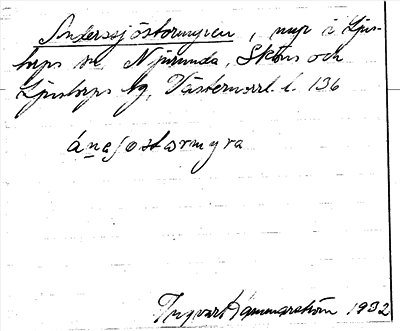 Anderssjöstormyren, myr i Ljus-
torps sn, Njurunda, Sköns och
Ljustorps tg, Västernorrl. l. 136
ánesostormyra
Ingvar Hammarström 1932